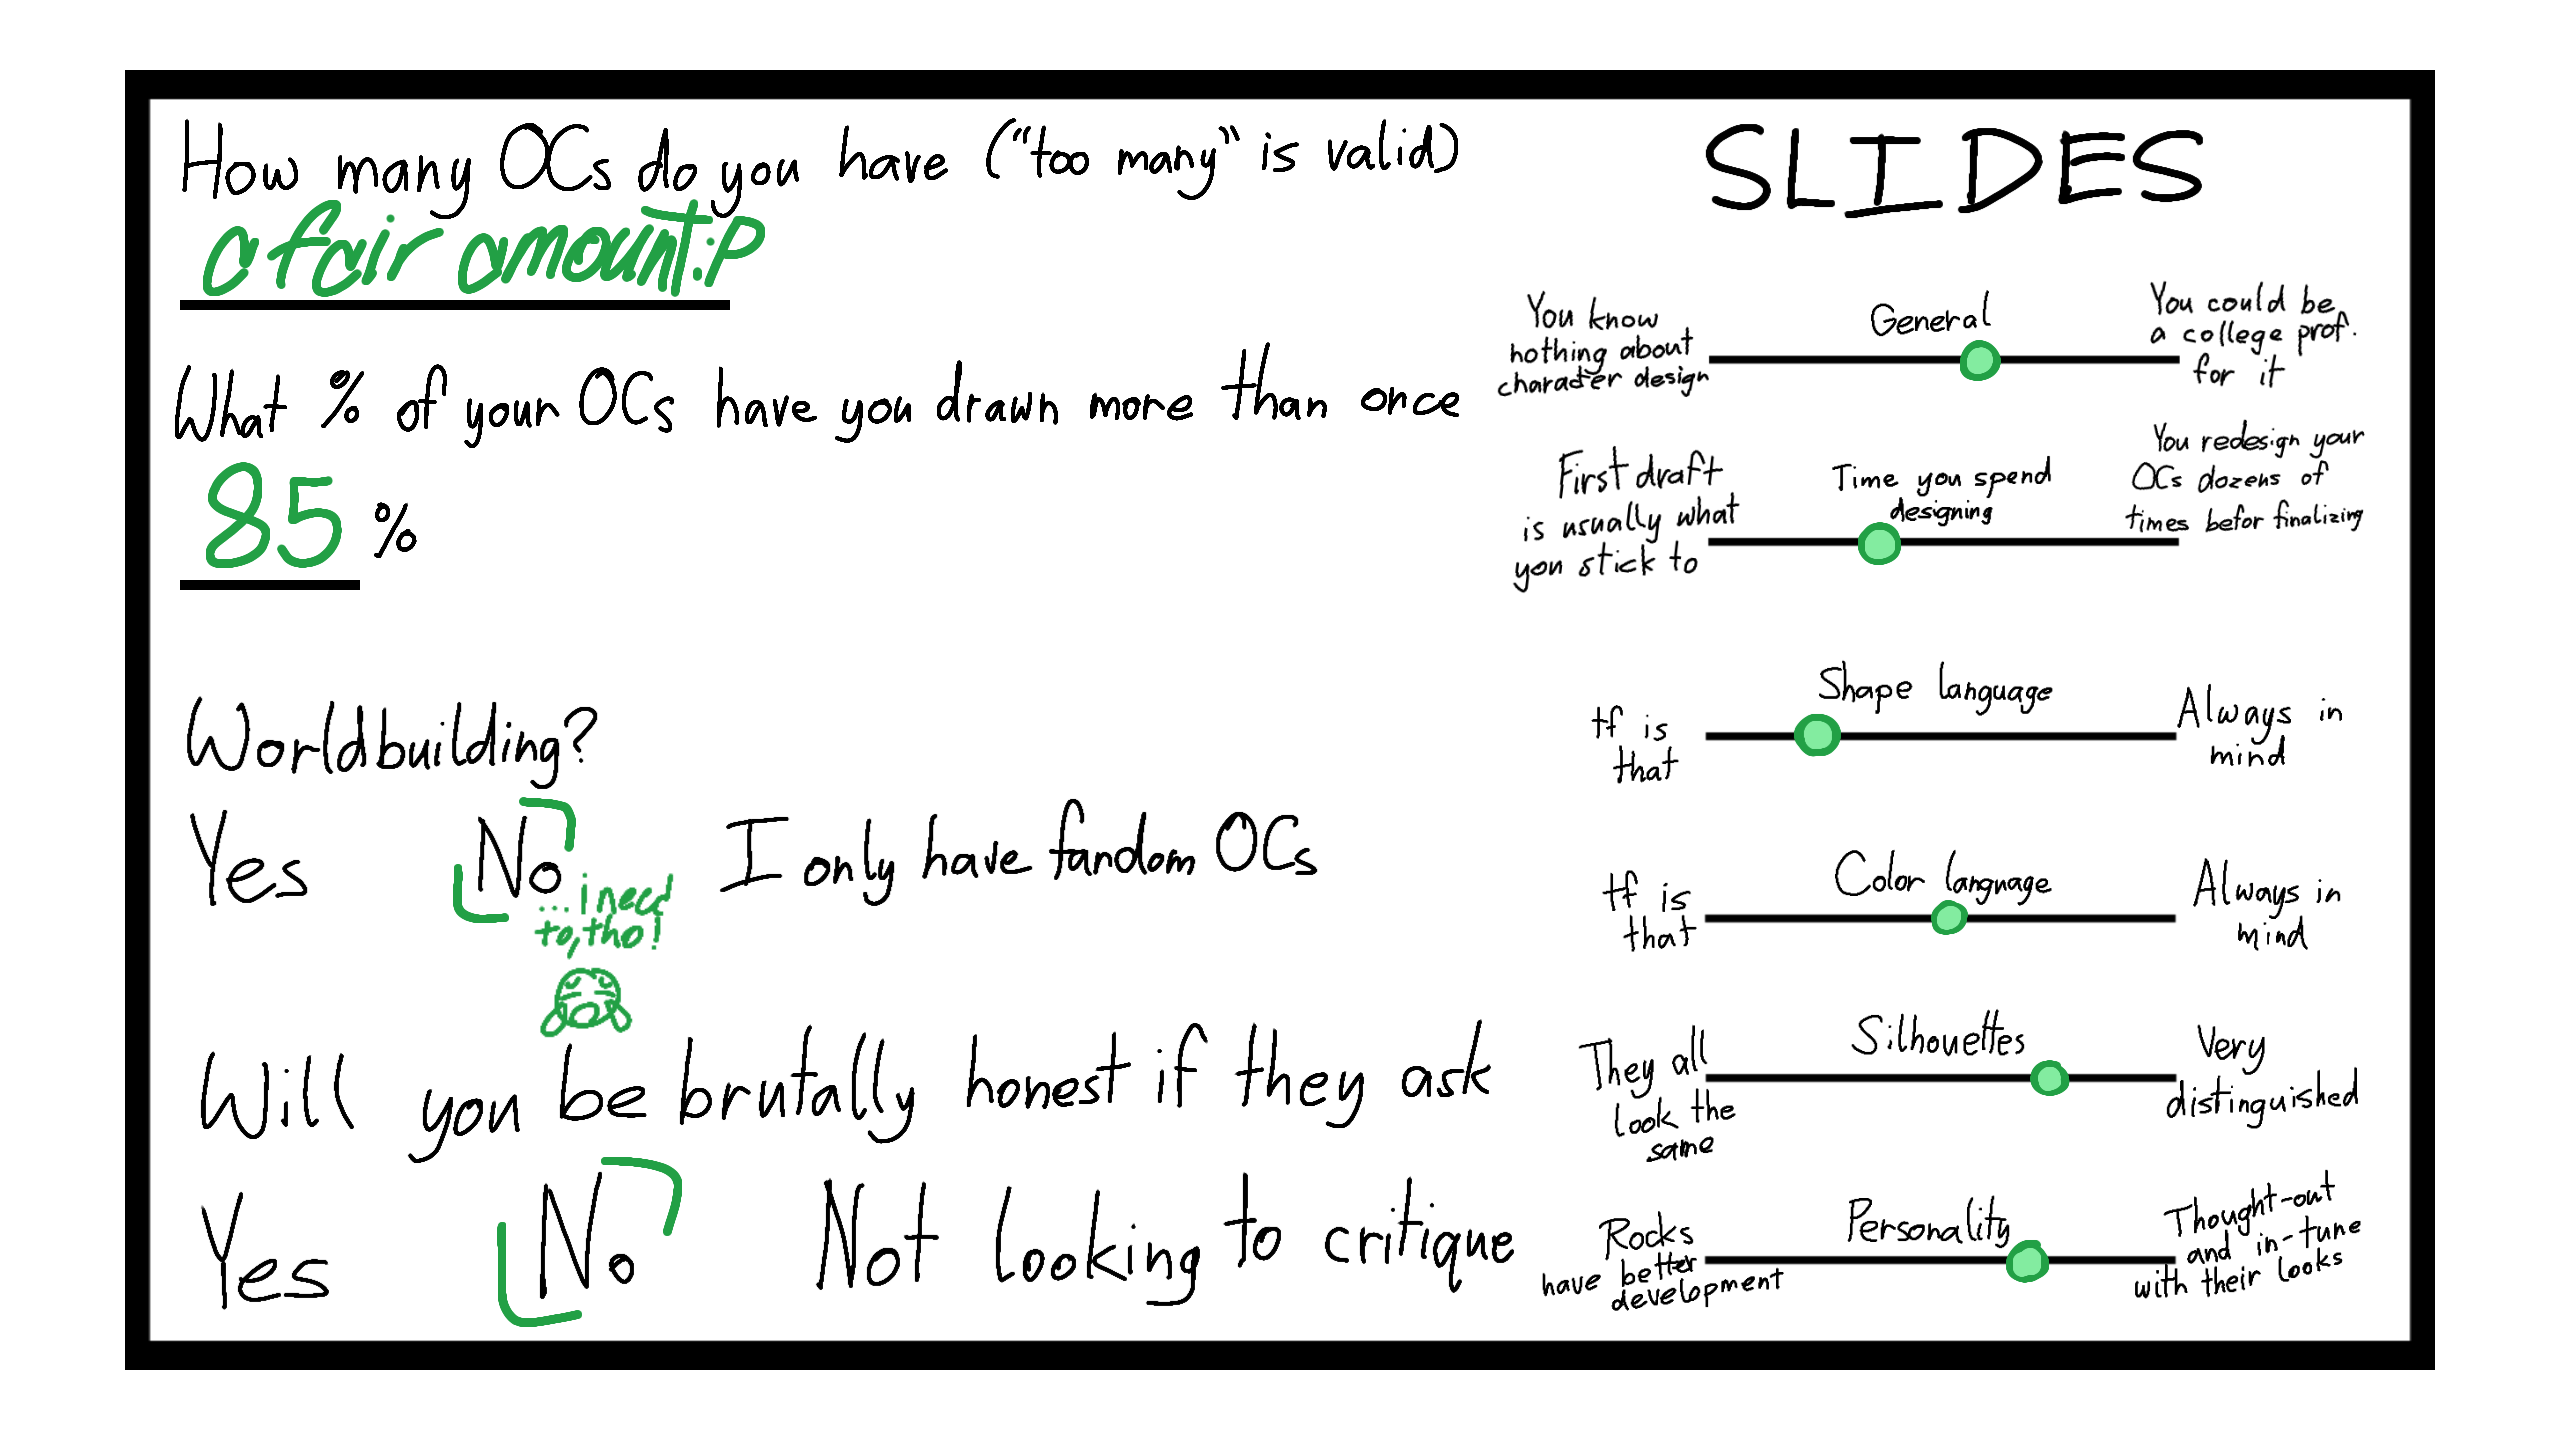 How many OCs do you have ("too many" is valid)
a fair amount :P
What % of your OCs have you drawn more than once
85 %
Worldbuilding?
Yes No I only have fandom OCs
...i need
to, tho!
Will you be brutally honest if they ask
Yes No Not looking to critique
SLIDES
General
You know
nothing about
character design
You could be
a college prof.
for it
Time you spend
designing
First draft
is usually what
you stick to
You redesign your
OCs dozens of
times befor finalizing
Shape language
tf is
that
Always in
mind
Color language
tf is
that
Always in
mind
Silhouettes
They all
look the
same
Very
distinguished
Personality
Rocks
have better
development
Thought-out
and in-tune
with their looks